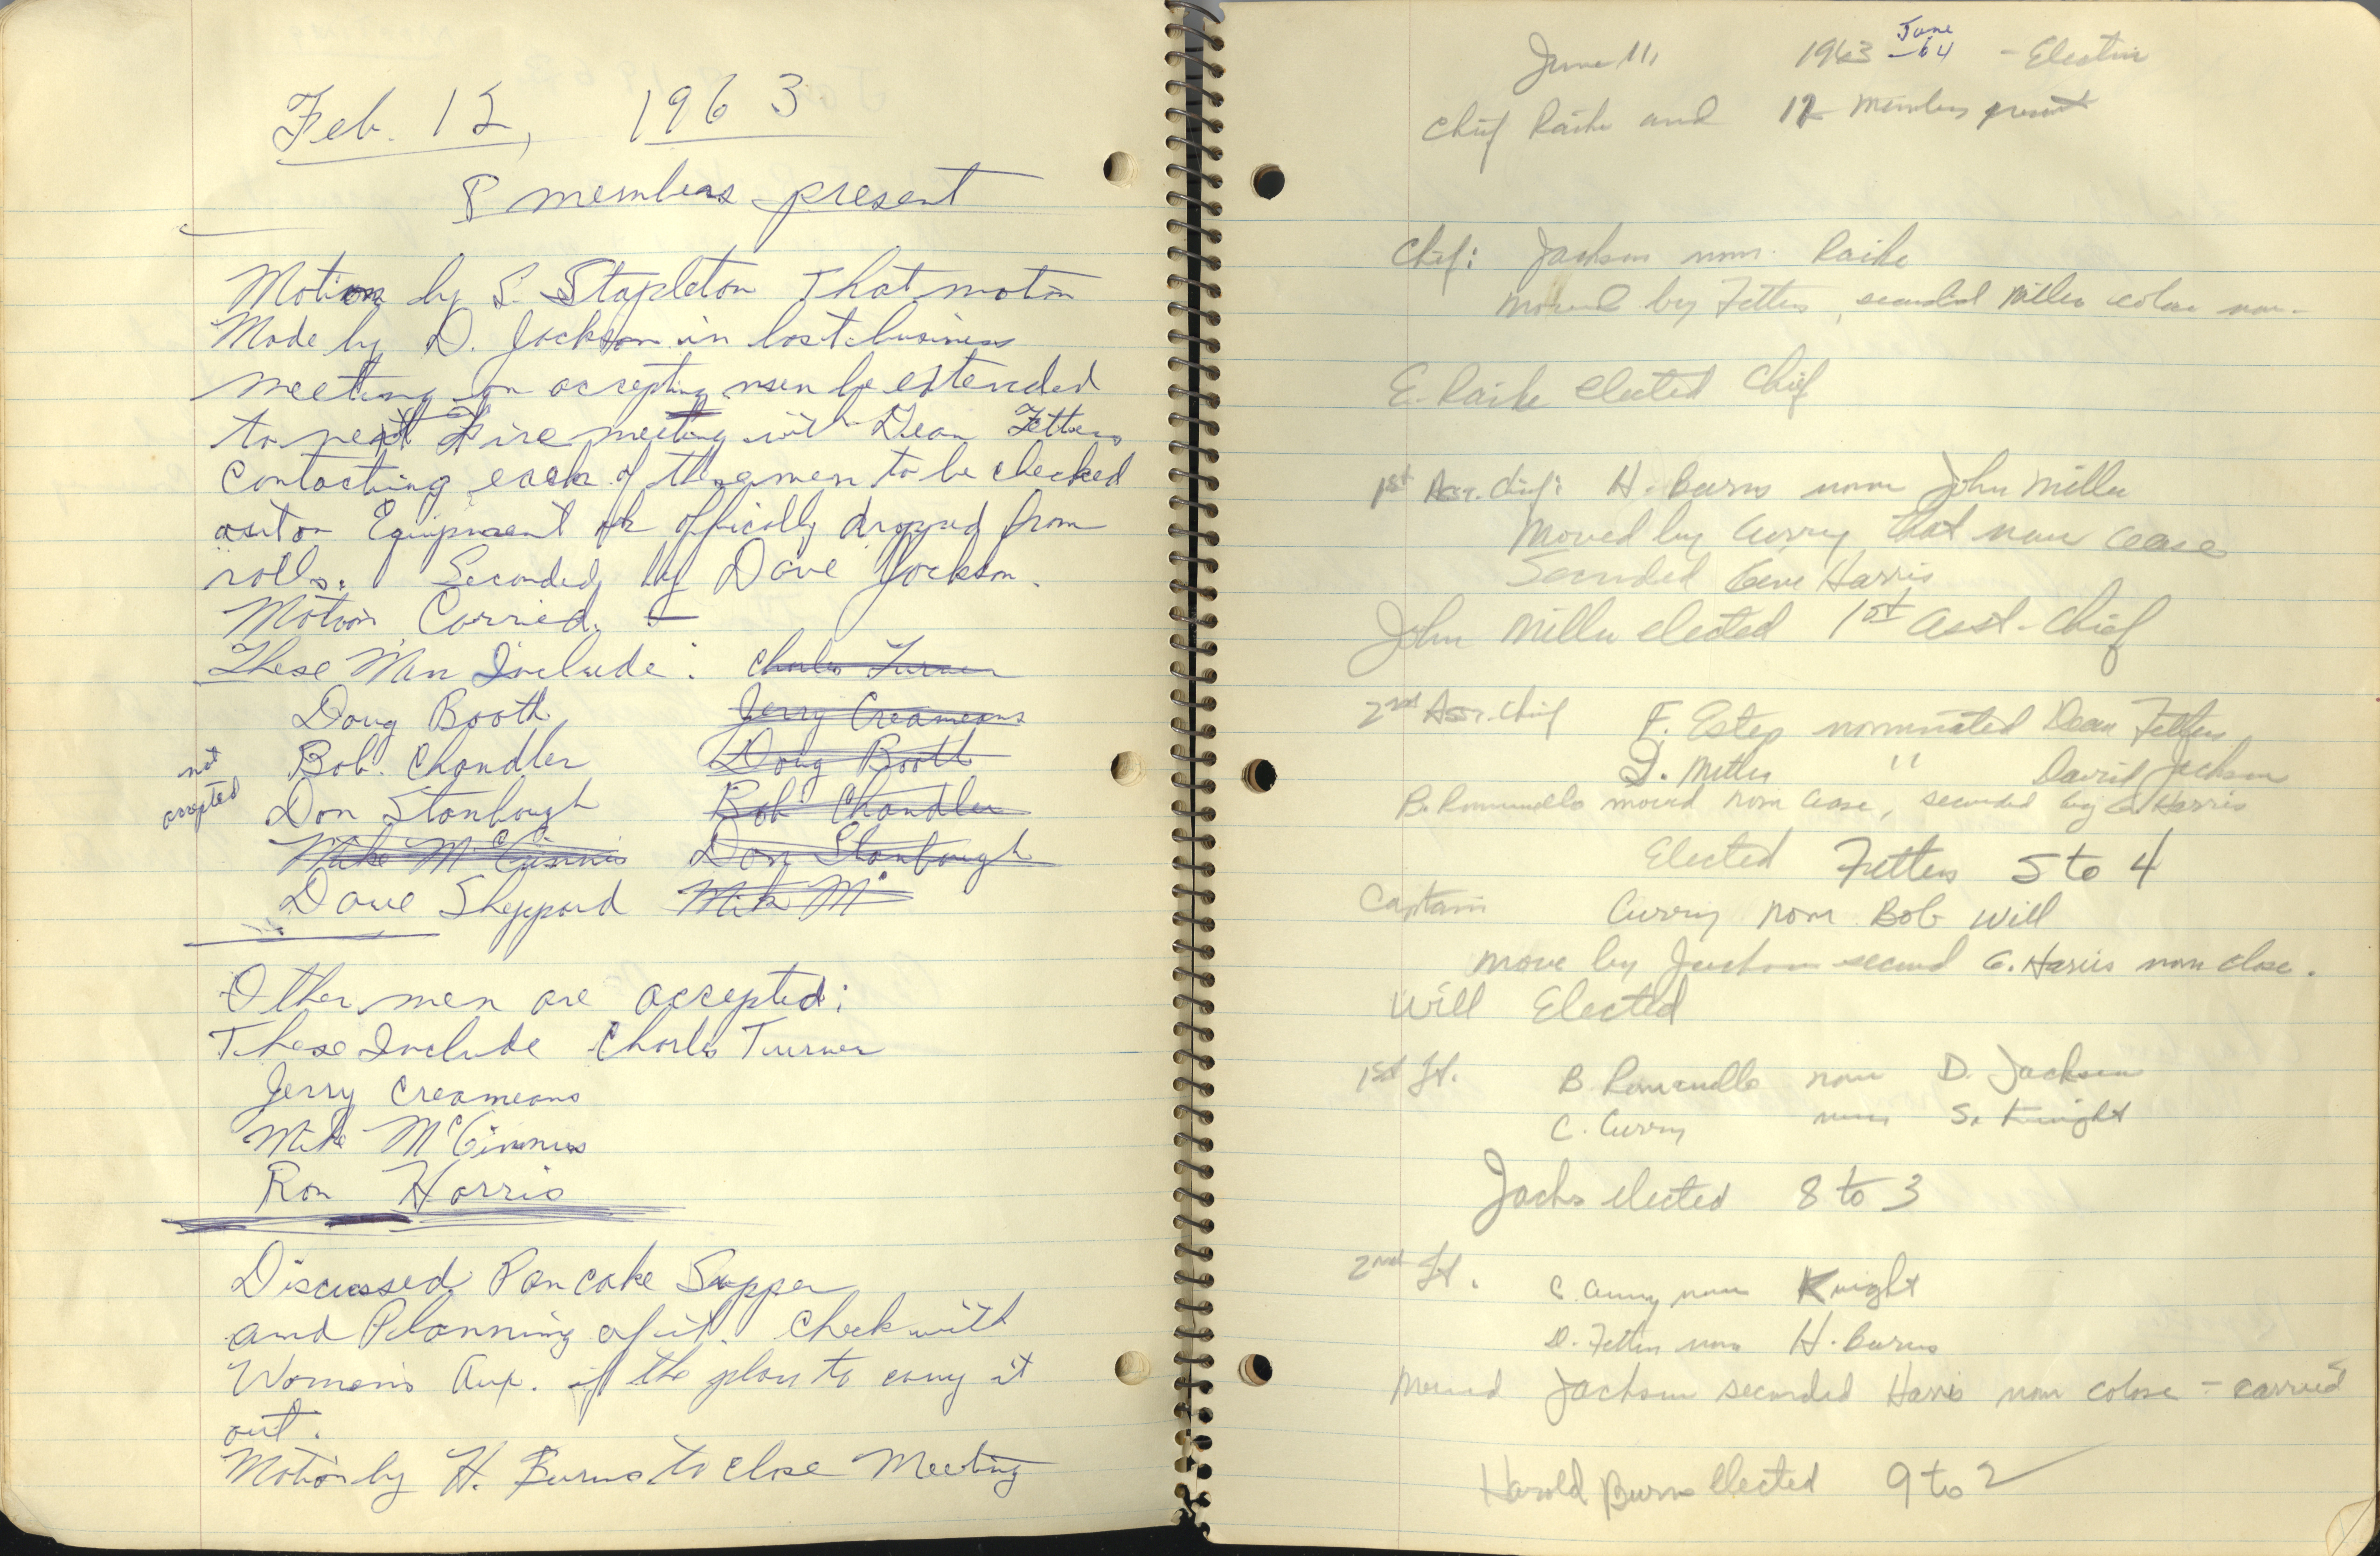 Feb. 12, 1963
8 members present
Motion by S. Stapleton That motion
Made by D. Jackson in last business
meeting on accepting men be extended
to next Fire meeting with Dean Fetters
Contacting each of these men to be checked
out on Equipment or offically dropped from
rolls. Seconded by Dave Jackson.
Motion Carried. —
These Men Include: Charles Turner
Doug Booth Jerry Creameans
not accepted
Bob. Chandler Doug Booth
Don Stanbough Bob Chandler
Mike McGinnis Don Stanbough
Dave Sheppard Mike Mc
Other men are accepted:
These Include Charles Turner
Jerry Creameans
Mike McGinnis
Ron Harris
Discussed Pancake Supper
and Planning of it. Check with
Women's Aux. if the plan to carry it
out.
Motion by H. Burns to close Meeting
June 11, 1963 June -64 - Election
Chief Raike and 12 members present
Chief: Jackson nom. Raike
moved by Fetters, seconded Miller close nom.
E. Raike elected Chief
1st Ass. Chief: H. Burns nom John Miller
Moved by Curry that nom cease
Seconded Gene Harris
John Miller elected 1st asst-Chief
2nd Ass. Chief F. Estep nominated Dean Fetters
D. Miller " David Jackson
B. Romanello moved nom cease, seconded by G. Harris
Elected Fetters 5 to 4
Captain Curry nom. Bob Will
move by Jackson second G. Harris nom close.
Will Elected
1st Lt. B. Romanello nom D. Jackson
C. Curry nom S. Knight
Jacks elected 8 to 3
2nd Lt. C. Curry nom Knight
D. Fetters nom H. Burns
Moved Jackson seconded Harris nom colose - carried
Harold Burns Elected 9 to 2